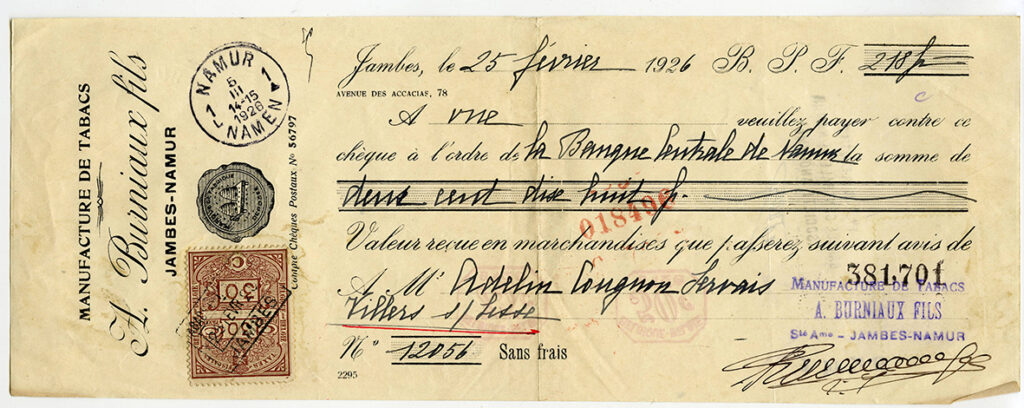 MANUFACTURE DE TABACS
A. Burniaux fils
JAMBES-NAMUR
Compte Chèques Postaux No 56797
NAMUR
1 1
6
III
14-15
1926
NAMEN
Jambes, le 25 février 1926 B. P. F. 218 f
AVENUE DES ACCACIAS, 78
A vue veuillez payer contre ce
chèque à l'ordre de la Banque Centrale de Namur la somme de
deux cent dix huit f.
018496
Valeur reçue en marchandises que passerez suivant avis de
381,701
A Mr Adelin Cougnon Servais
Villers s/ Lesse
MANUFACTURE DE TABACS
A. BURNIAUX FILS
Sté Ame - JAMBES-NAMUR
No 12056 Sans frais
2295
30
JAMBES